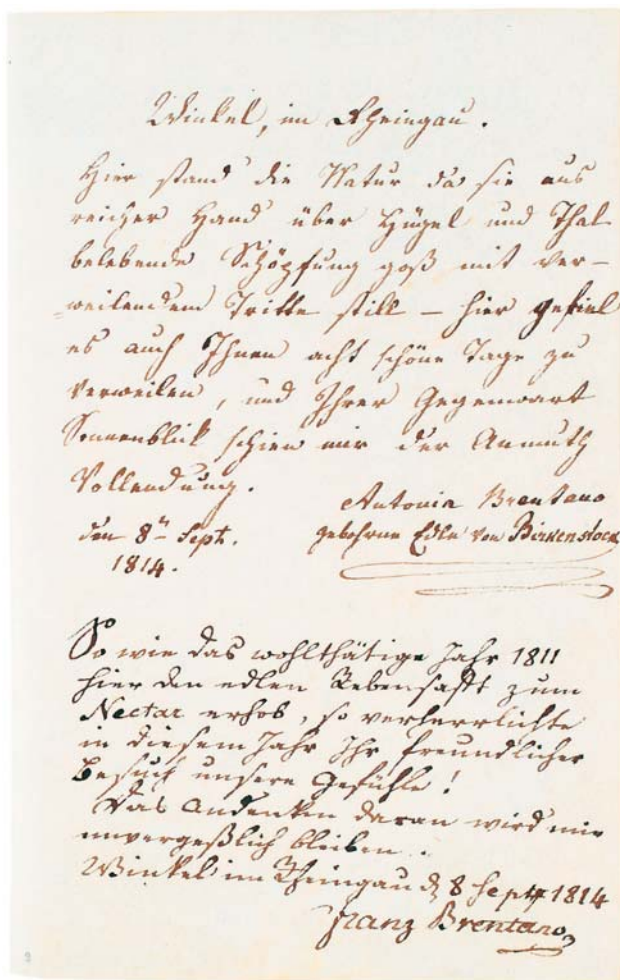 Winkel, im Rheingau.
Hier stand die Natur da sie aus
reicher Hand über Hügel und Thal
belebende Schöpfung goß mit ver-
=weilendem Tritte still – hier gefiel
es auch Ihnen acht schöne Tage zu
verweilen, und Ihrer Gegenwart
Sonnenblick schien mir der Anmuth
Vollendung.
Antonia Brentano
den 8ⁿ Sept. gebohrne Edle von Birkenstock
1814.
So wie das wohlthätige Jahr 1811
hier den edlen Rebensaft zum
Nectar erhob, so verherrlichte
in diesem Jahr Ihr freundlicher
Besuch unsere Gefühle!
Das Andenken daran wird mir
unvergeßlich bleiben.
Winkel im Rheingau d 8 Sept 1814
Franz Brentano